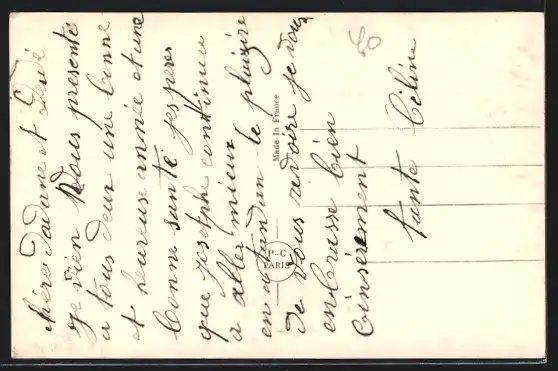 chères Dadane et Dédé
je vien vous présenté
a tous deux une bonne
et heureuse année et une
bonne santé jesperes
que josephe continue
a aller mieux
en attendan le plaizire
de vous redvoire je vous
enbrasse bien
cinsèrement
tante Céline
Made in France
P-C
PARIS